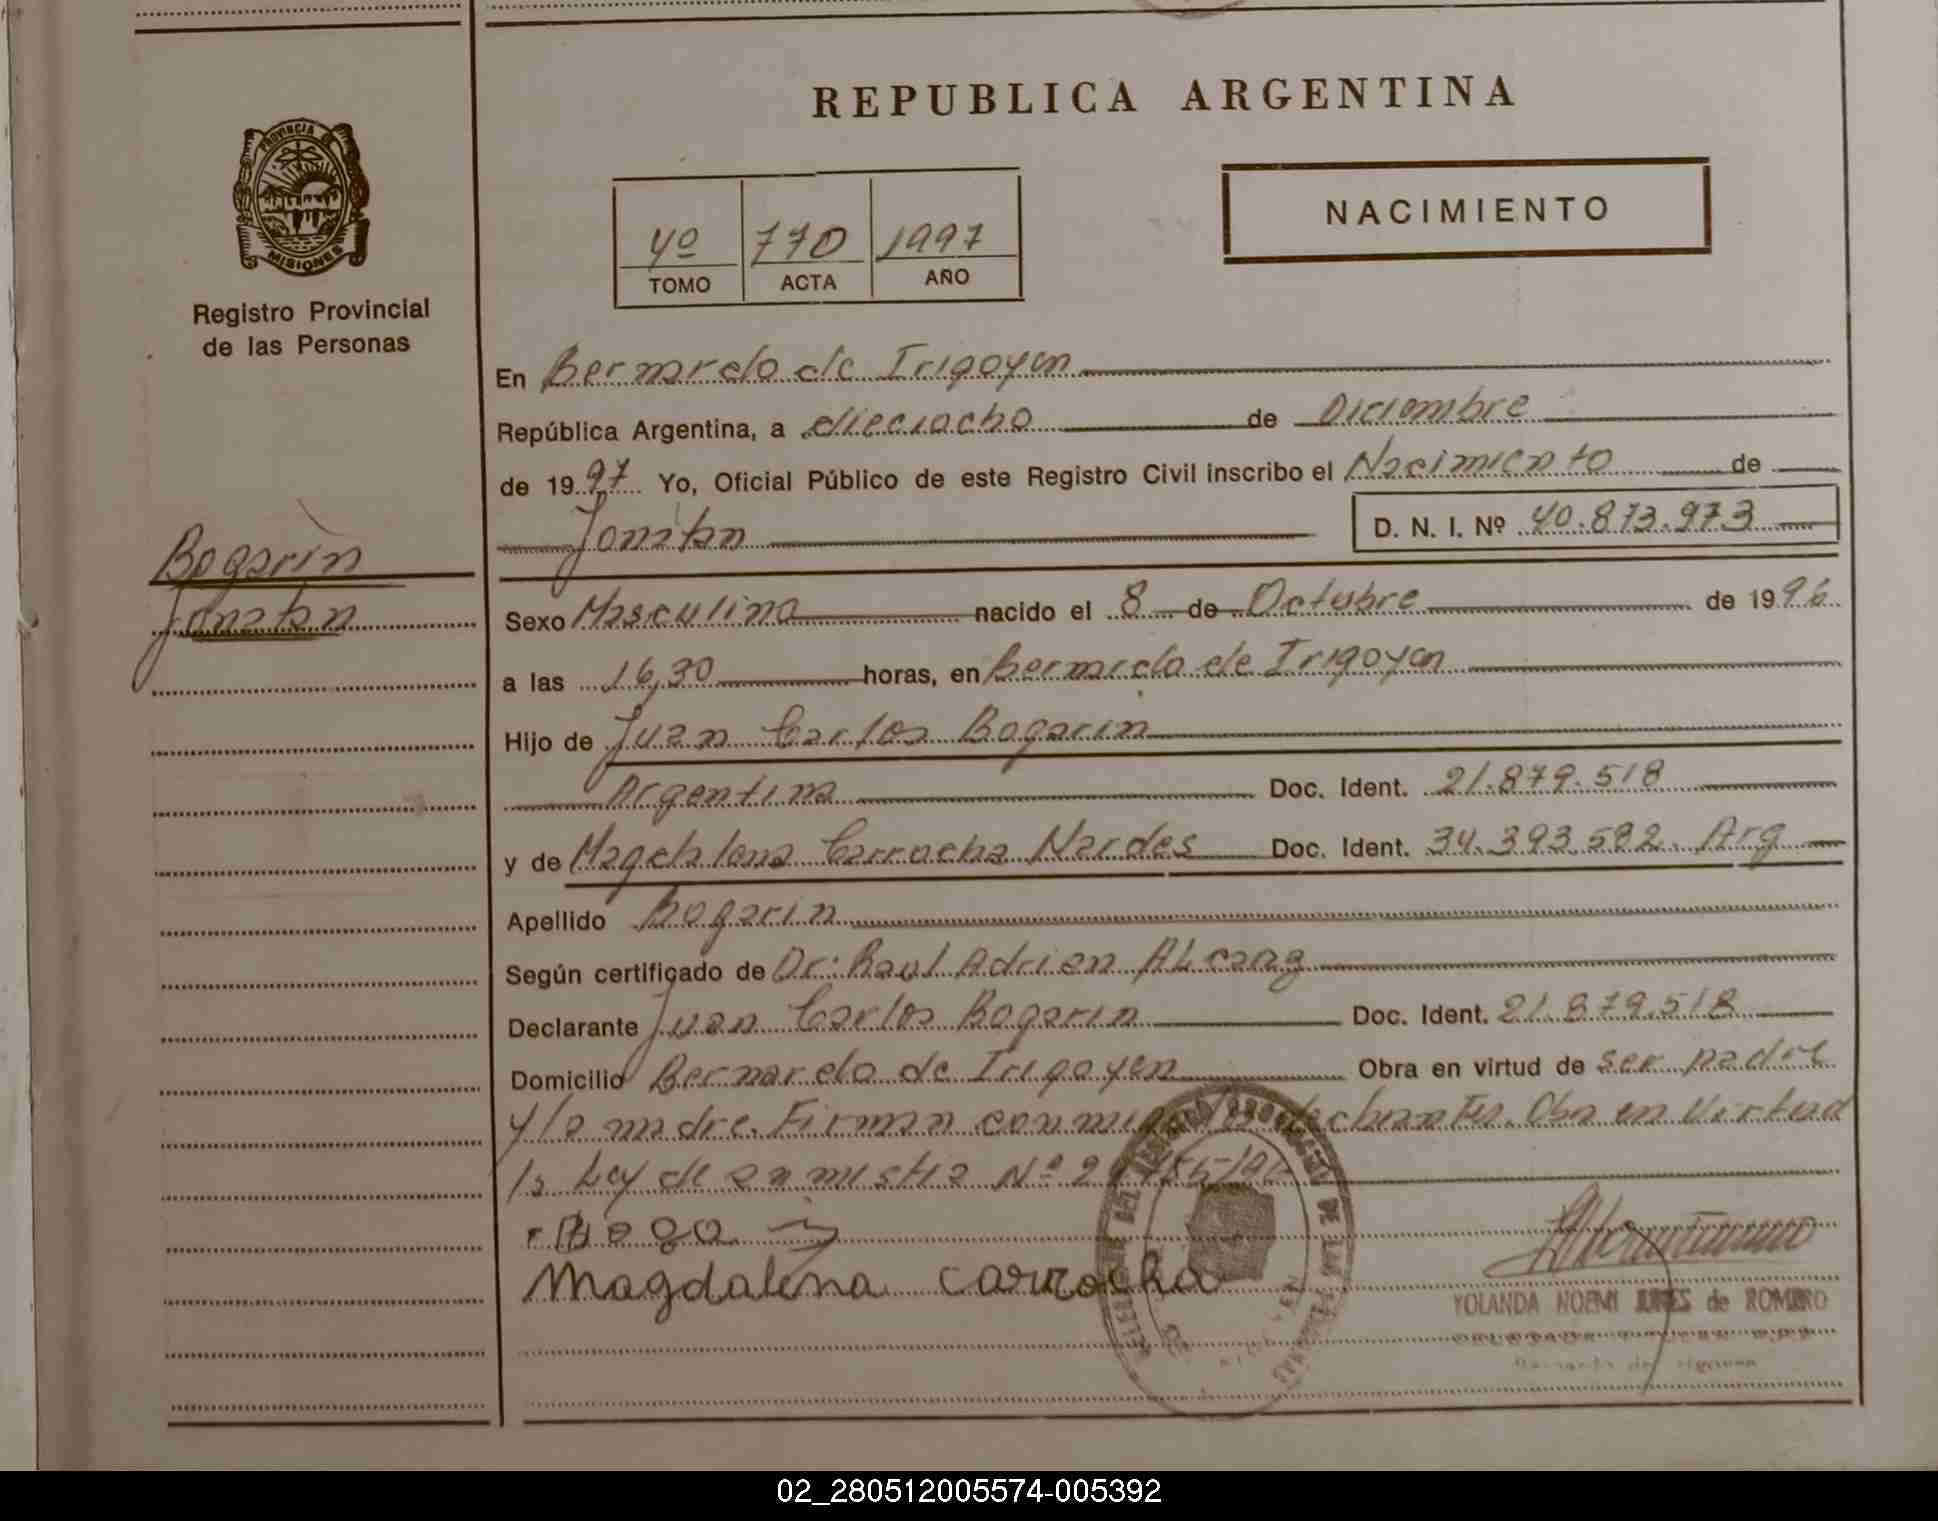 REPUBLICA ARGENTINA
PROVINCIA DE
MISIONES
Registro Provincial
de las Personas
4º 770 1997
TOMO ACTA AÑO
NACIMIENTO
En Bernardo de Irigoyen
República Argentina, a dieciocho de Diciembre
de 1997 Yo, Oficial Público de este Registro Civil inscribo el Nacimiento de
Jonatan D. N. I. Nº 40.873.973
Bogarin
Jonatan
Sexo Masculino nacido el 8 de Octubre de 1996
a las 16,30 horas, en Bernardo de Irigoyen
Hijo de Juan Carlos Bogarin
Argentina Doc. Ident. 21.879.518
y de Magdalena Carrocha Nardes Doc. Ident. 34.393.592. Arg
Apellido Bogarin
Según certificado de Dr: Raul Adrian
Declarante Juan Carlos Bogarin Doc. Ident. 21.879.518
Domicilio Bernardo de Irigoyen Obra en virtud de ser padre
y la madre. Firman conmigo los declarantes. Oba en Virtud
la Ley de amnistia Nº
Magdalena Carrocha
YOLANDA NOEMI de ROMERO